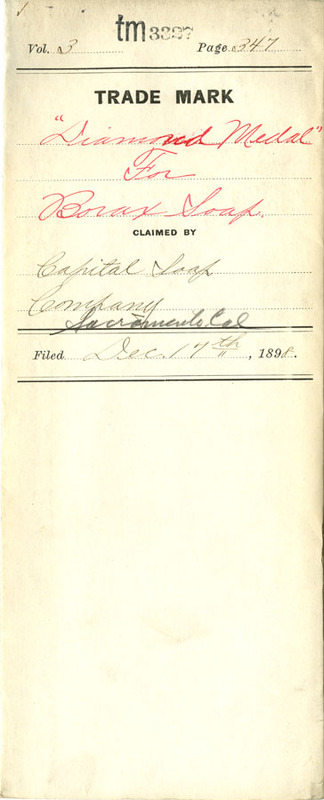 tm 3397
Vol. 3 Page 347
TRADE MARK
"Diamond Medal"
For
Borax Soap.
CLAIMED BY
Capital Soap
Company
Sacramento Cal
Filed Dec. 17th, 1898.